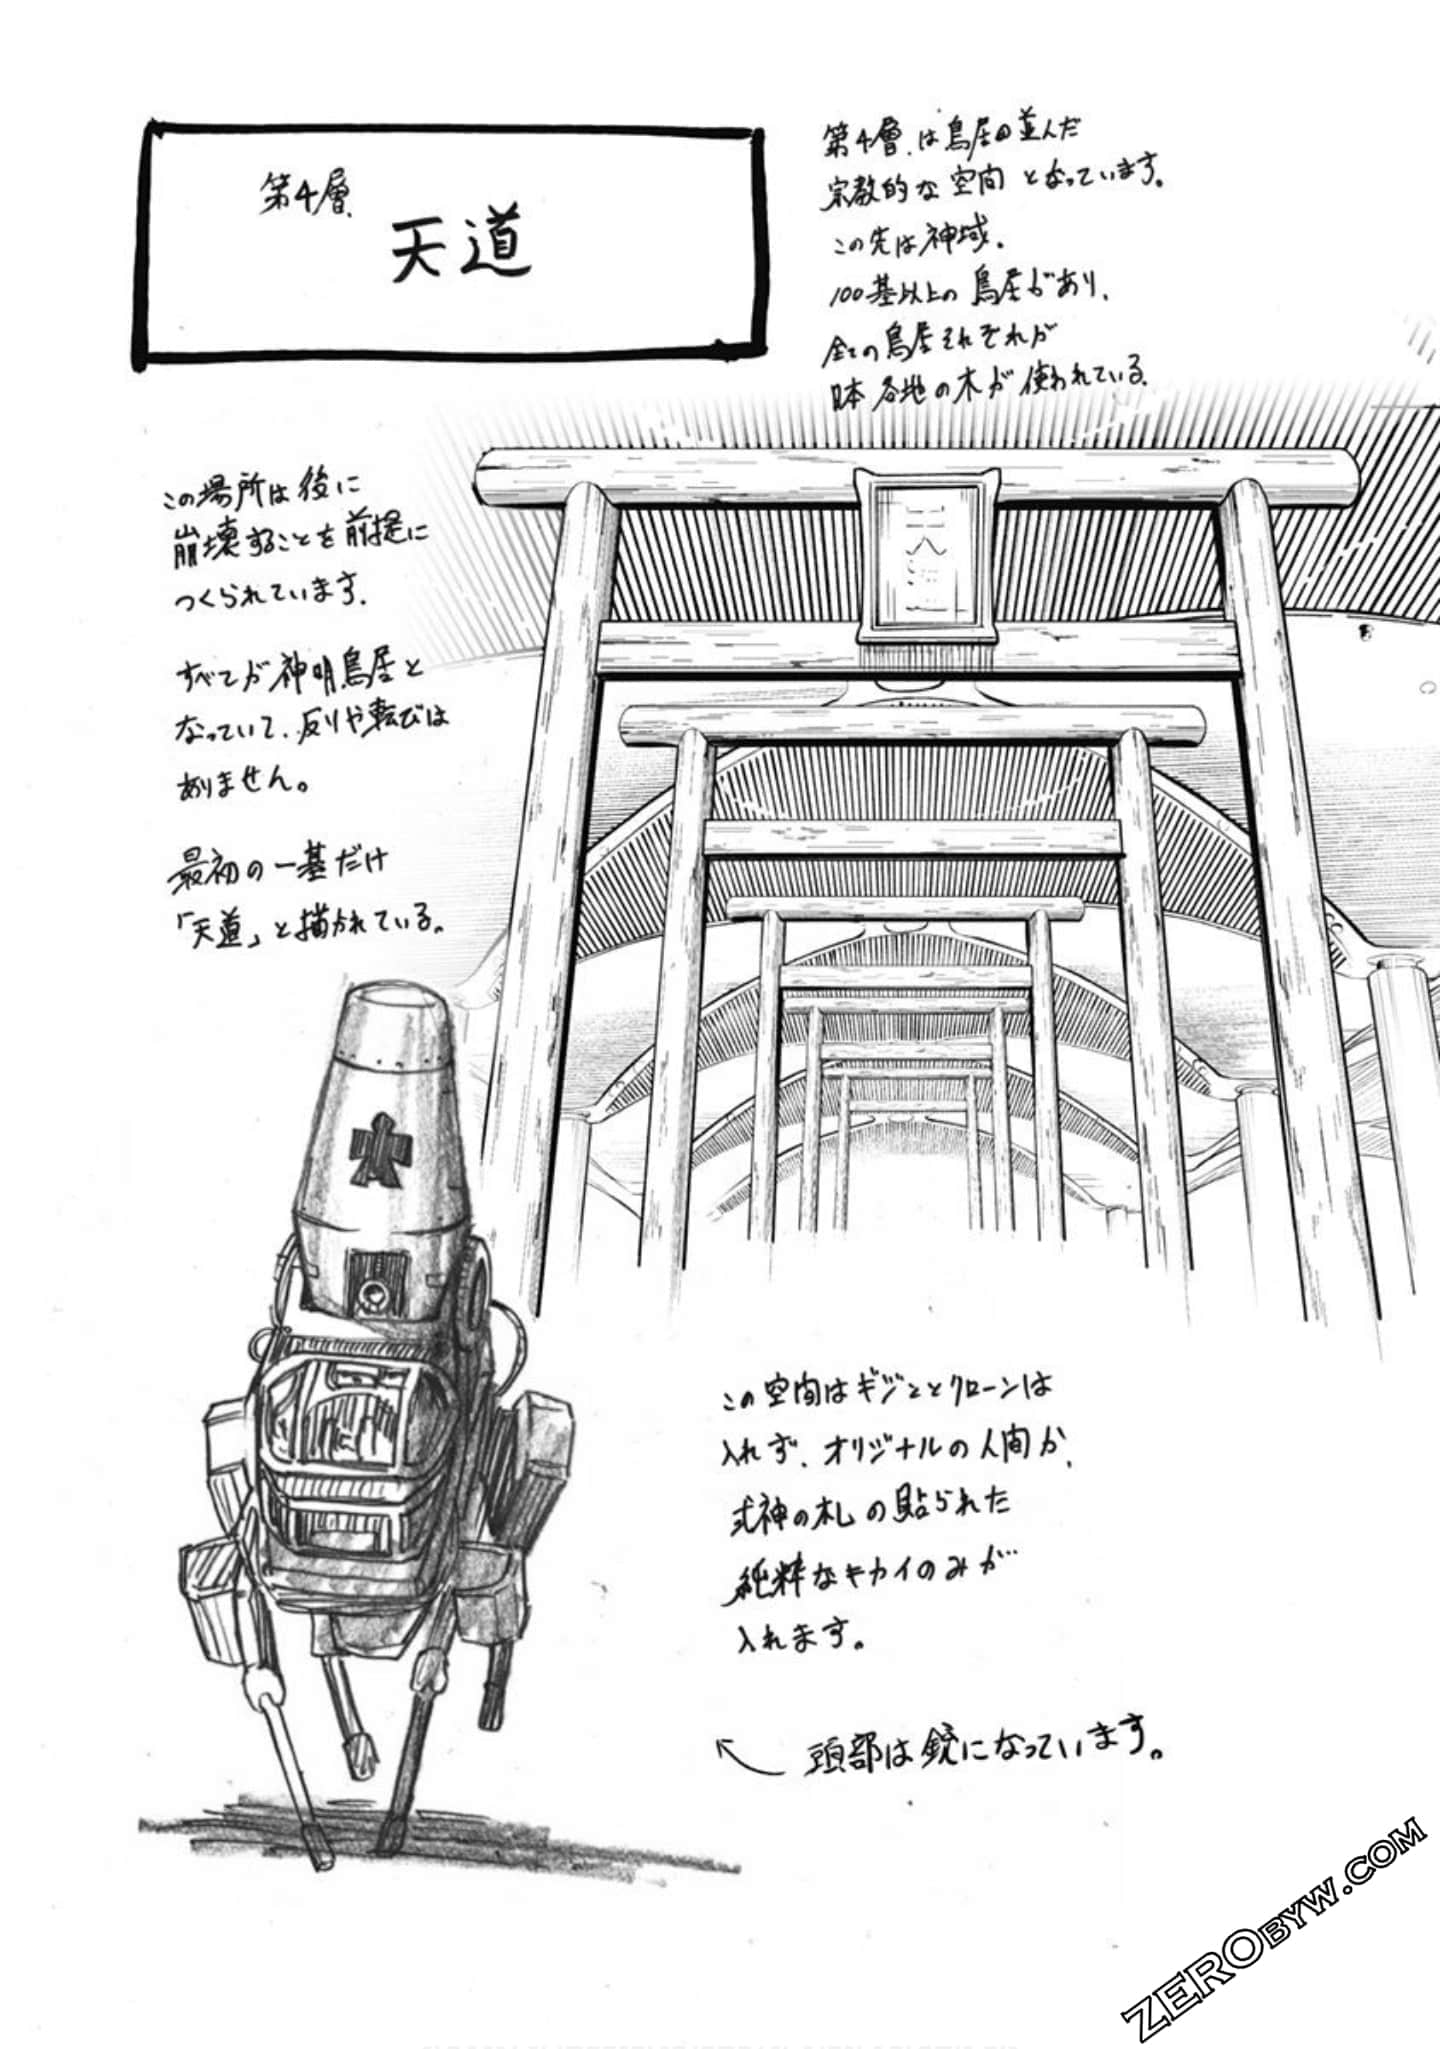 第4層
天道
第4層は鳥居の並んだ
宗教的な空間となっています。
この先は神域。
100基以上の鳥居があり、
全ての鳥居それぞれが
日本各地の木が使われている。
この場所は後に
崩壊することを前提に
つくられています。
すべてが神明鳥居と
なっていて、反りや転びは
ありません。
最初の一基だけ
「天道」と描かれている。
この空間はギジンとクローンは
入れず、オリジナルの人間か、
式神の札の貼られた
純粋なキカイのみが
入れます。
頭部は鏡になっています。
ZEROBYW.COM